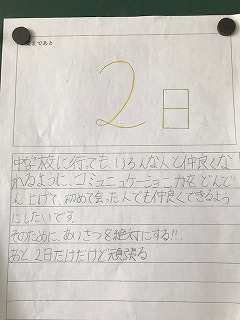 まであと
2日
中学校に行っても、いろんな人と仲良くな
れるように、コミュニケーション力をどんど
ん上げて、初めて会った人でも仲良くできるよう
にしたいです。
そのために、あいさつを絶対にする!!
あと、2日だけだけど頑張る